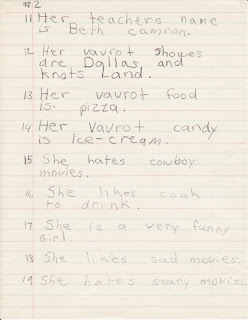 #2
11 Her teachers name
is Beth camron.
12 Her vavrot showes
are Dallas and
knots Land.
13 Her vavrot food
is pizza.
14 Her vavrot candy
is ice-cream.
15 She hates cowboy
movies.
16 She likes coak
to drink.
17 She is a very funny
girl.
18 She likes sad movies.
19 She hates scary movies.